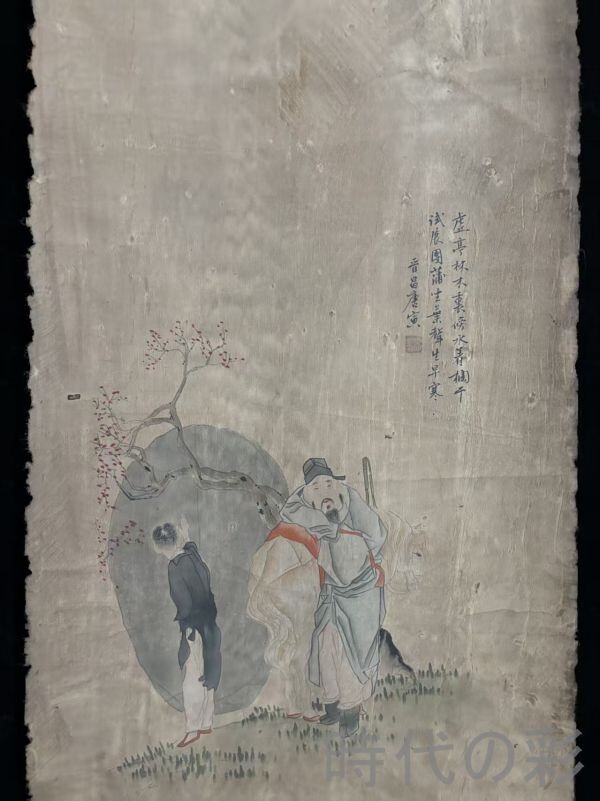 虛亭林木裏傍水著欄干
試展團蒲坐葉聲生早寒
晋昌唐寅
時代の彩